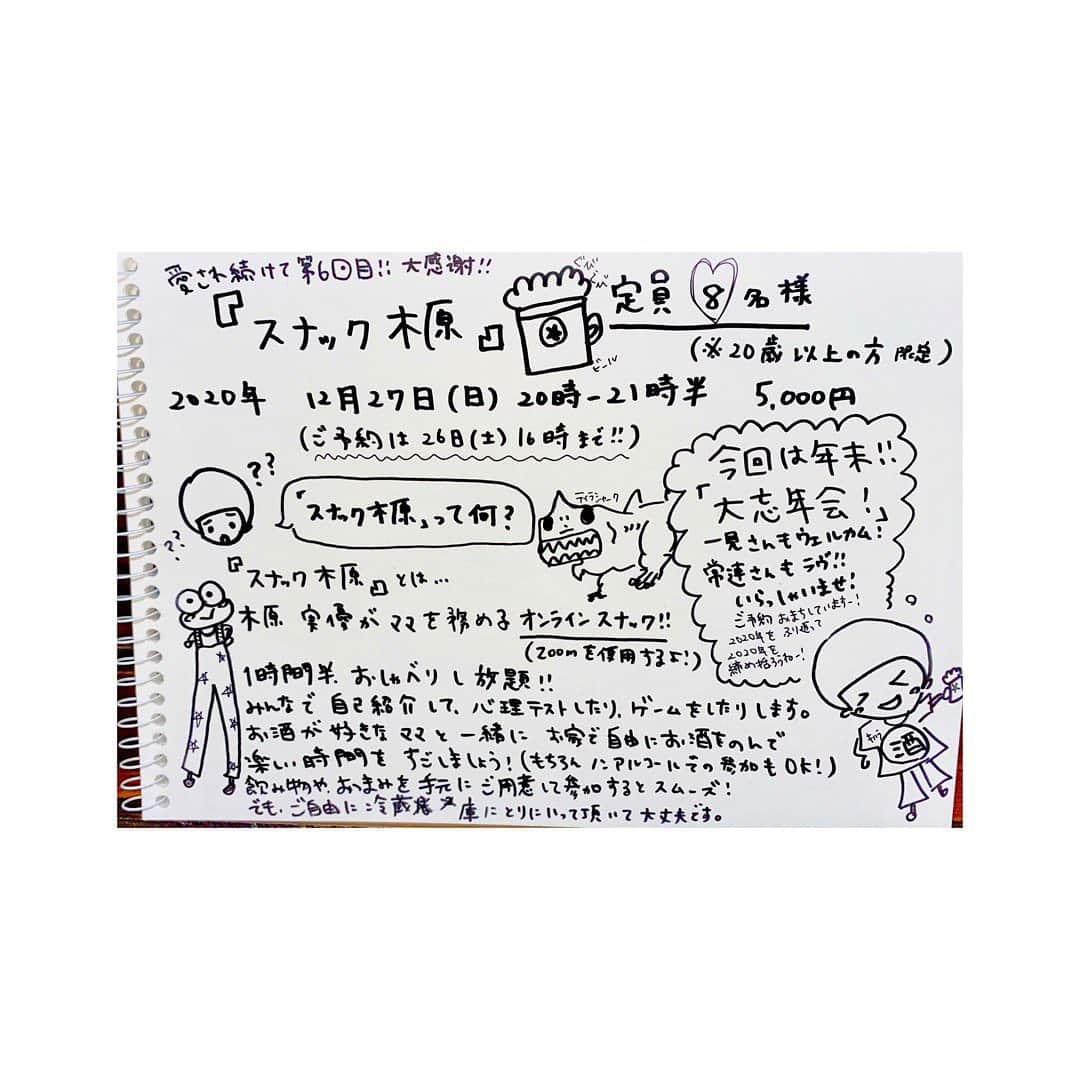 愛され続けて第6回目!! 大感謝!!
『スナック木原』
ぐび
ぐび
ビール
定員 8 名様
(※20歳以上の方 限定)
2020年 12月27日(日) 20時-21時半 5,000円
(ご予約は26日(土)16時まで!!)
??
??
「スナック木原」って何?
ティラシャーク
今回は年末!!
「大忘年会!」
一見さんもウェルカム!
常連さんもラヴ!!
いらっしゃいませ!
ご予約おまちしていますー!
2020年をふり返って
2020年を
『スナック木原』とは...
木原 実優がママを務めるオンラインスナック!!
(Zoomを使用するよ!)
1時間半、おしゃべりし放題!!
みんなで自己紹介して、心理テストしたり、ゲームをしたりします。
お酒が好きなママと一緒に お家で自由にお酒をのんで
楽しい時間をすごしましょう!(もちろんノンアルコールでの参加もOK!)
飲み物や、おつまみを手元にご用意して参加するとスムーズ!
でも、ご自由に冷蔵庫にとりにいって頂いて大丈夫です。
酒